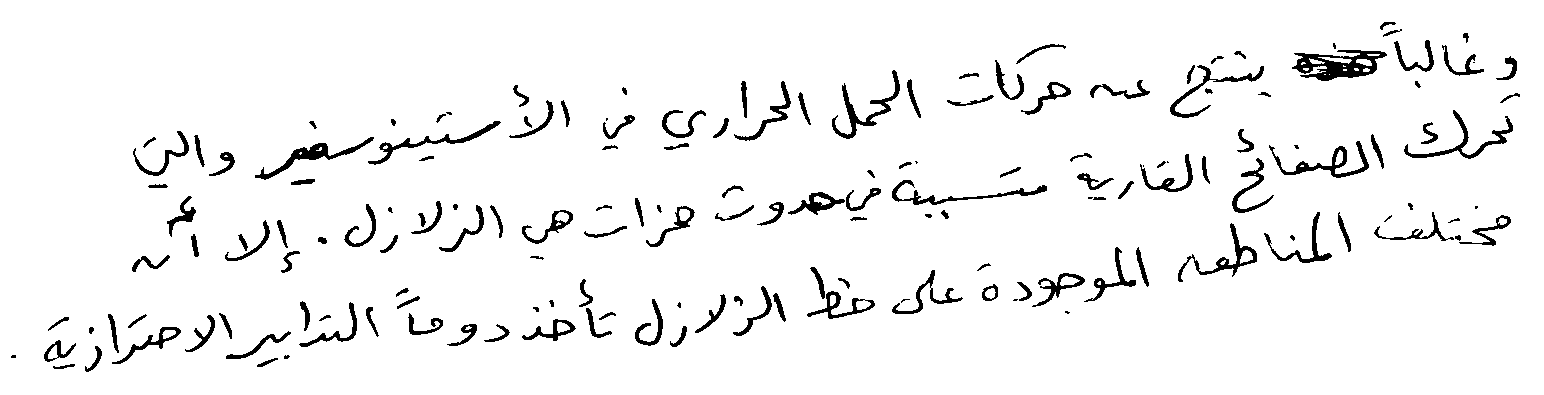 وغالباً ينتج عن حركات الحمل الحراري في الأستينوسفير والتي
تحرك الصفائح القارية متسببة في حدوث هزات هي الزلازل. إلا أنّ
مختلف المناطق الموجودة على خط الزلازل تأخذ دوماً التدابير الاحترازية.